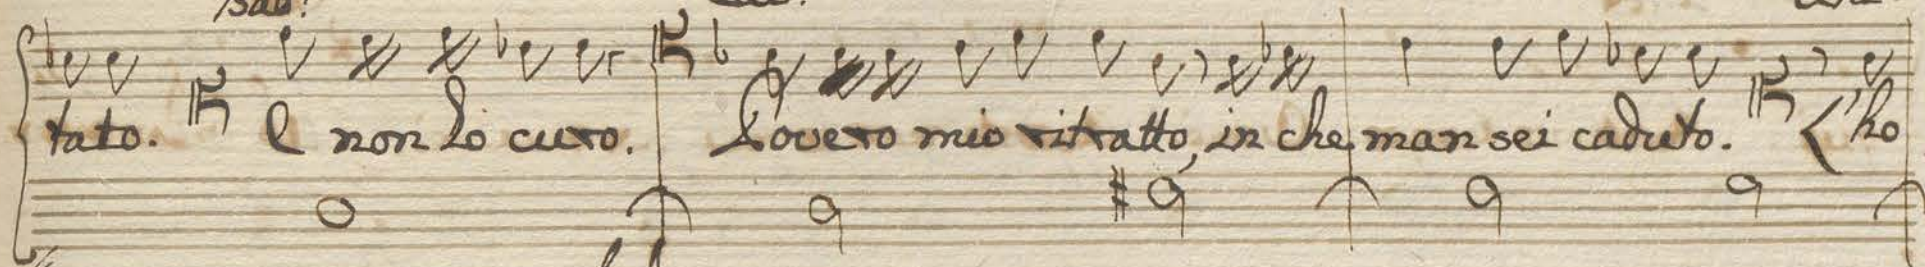 tato. E non lo curo. Povero mio ritratto, in che man sei caduto. L'ho